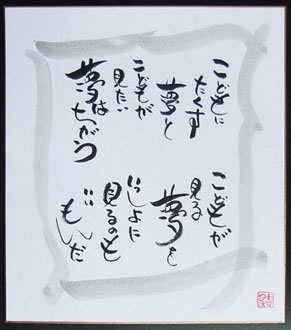 こどもに
たくす
夢と
こどもが
見たい
夢は ちがう
こどもが
見る
夢を
いっしょに
見るのも
いい
もんだ